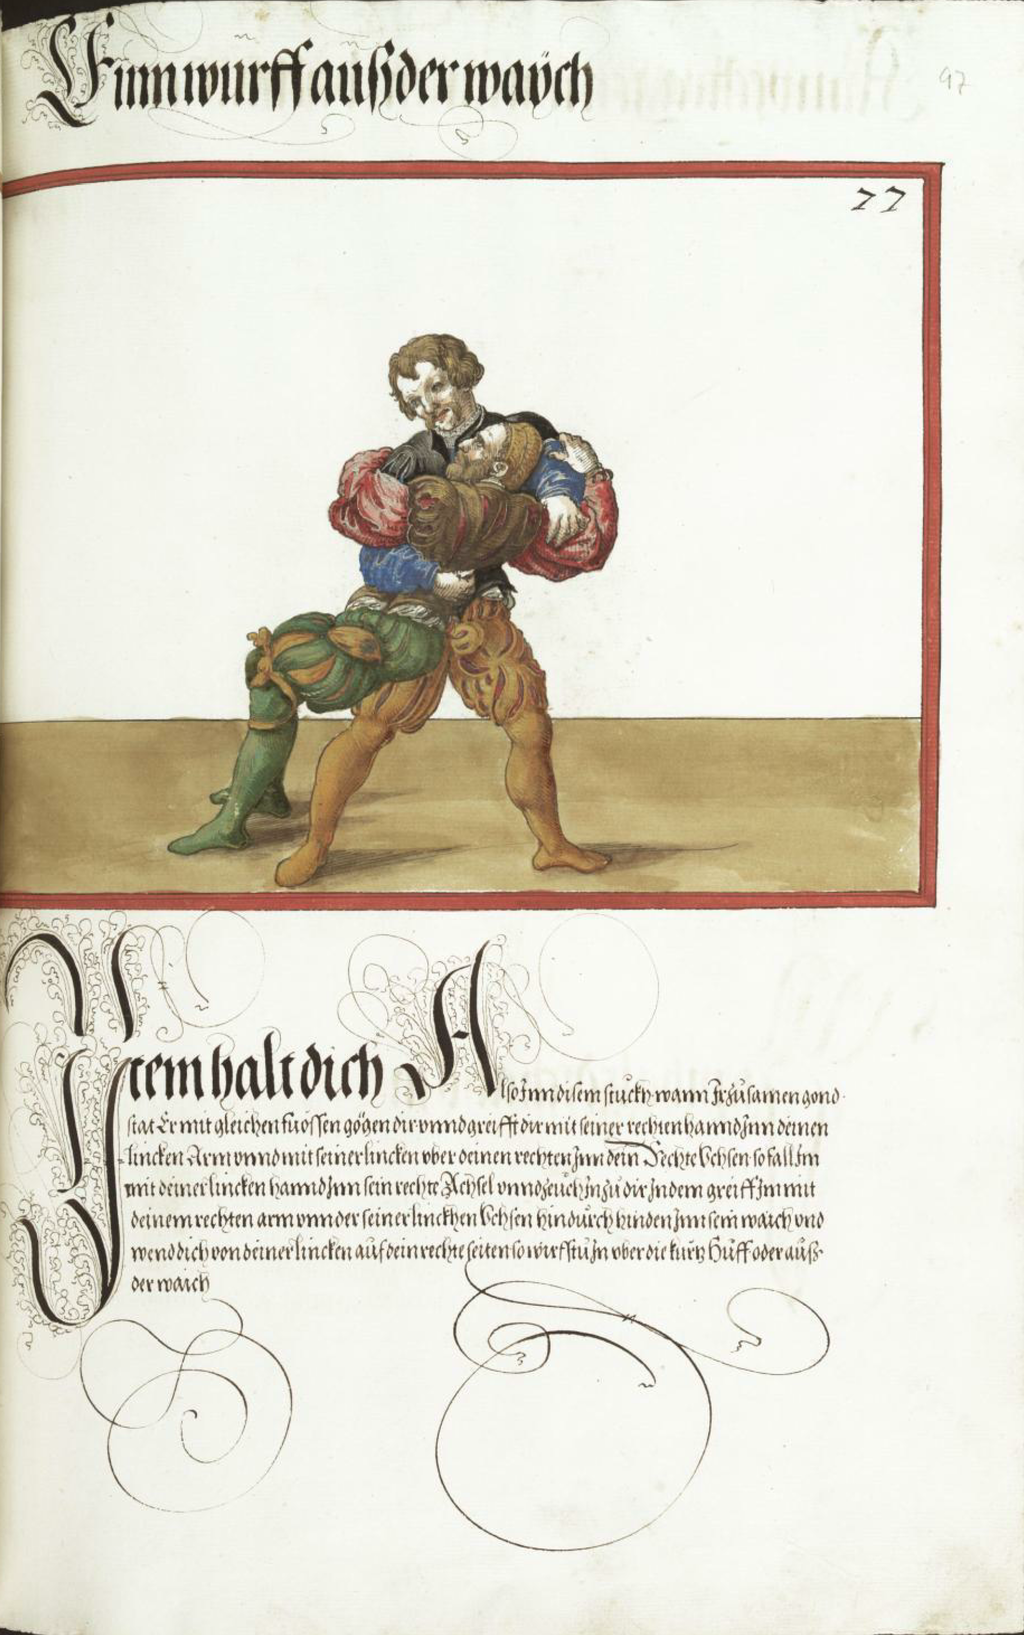 Einn wurff auß der waÿch
97
77
Ytem halt dich Also Inn disem stuckh wann Ir zusamen gond
stat Er mit gleichen fuossen gögen dir vnnd greifft dir mit seiner rechten hannd Inn deinen
lincken Arm vnnd mit seiner lincken vber deinen rechten Inn dein Rechte Vchsen so fall Im
mit deiner lincken hannd Inn sein rechte Achsel vnnd zeuch In zu dir Indem greiff Im mit
deinem rechten arm vnnder seiner linckhen Vchsen hindurch hinden Inn sein waich vnd
wend dich von deiner lincken auf dein rechte seiten so wirfstu In vber die kurtz Huff oder auß
der waich